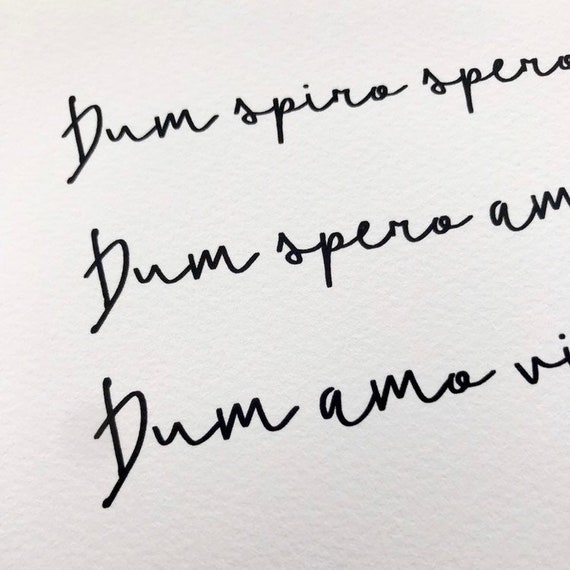 Dum spiro spero
Dum spero am
Dum amo vi